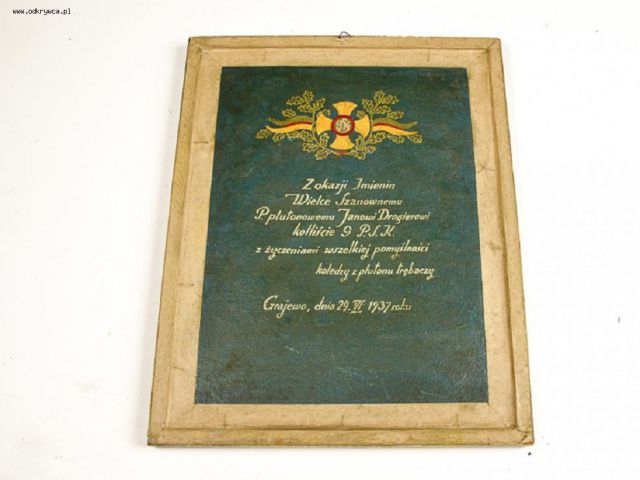 www.odkrywca.pl
Z okazji Imienin
Wielce Szanownemu
P. plutonowemu Janowi Drogierowi
kotliście 9 P.S.K.
z życzeniami wszelkiej pomyślności
koledzy z plutonu trębaczy
Grajewo, dnia 24. VI 1937 roku